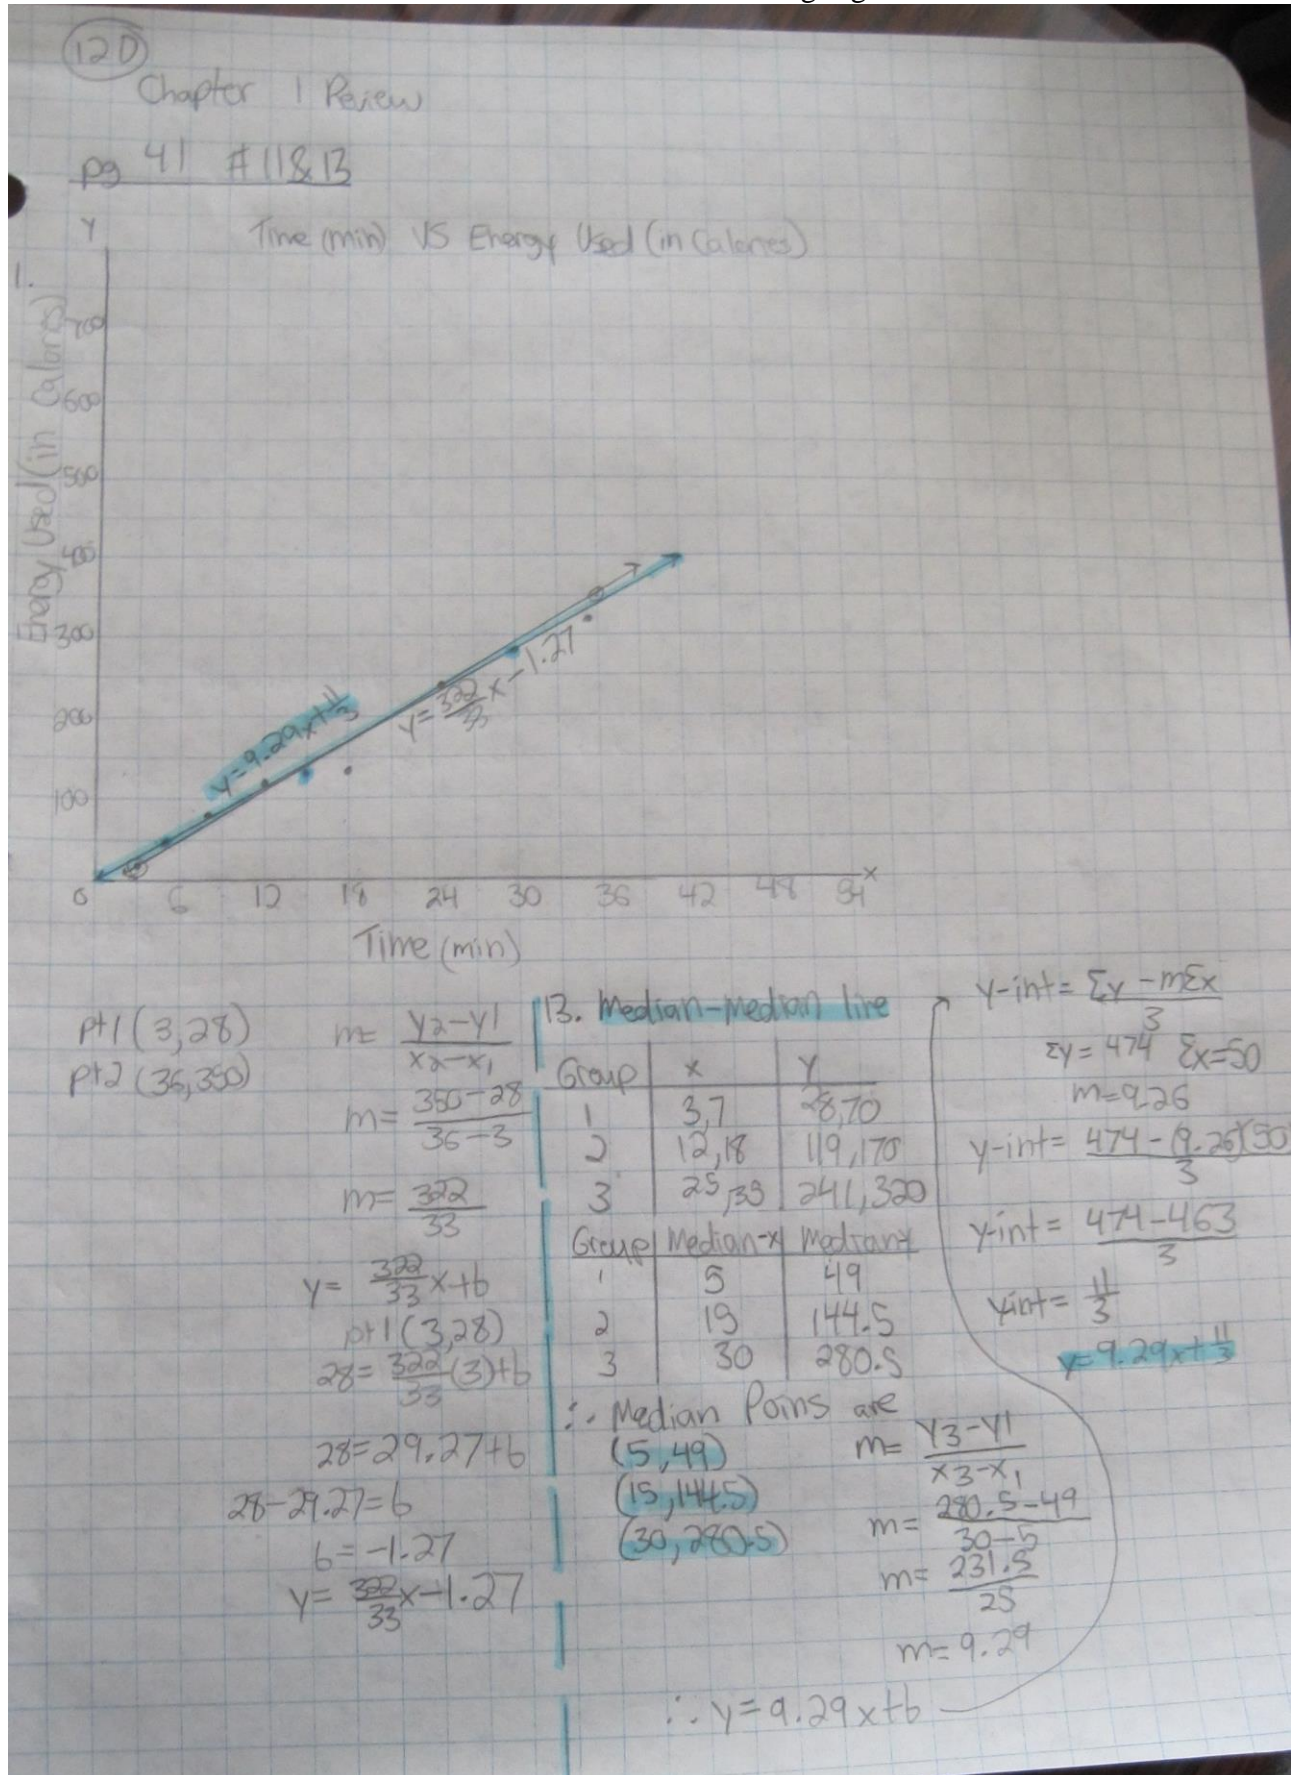 120
Chapter 1 Review
pg 41 #11&13
Y
Time (min) VS Energy Used (in Calories)
1.
Energy Used (in Calories)
700
600
500
400
300
200
100
0 6 12 18 24 30 36 42 48 54 x
Time (min)
y=9.29x+11/3
y=322/33x-1.27
pt1 (3,28)
pt2 (36,350)
m= y2-y1/x2-x1
m= 350-28/36-3
m= 322/33
y= 322/33x+b
pt1 (3,28)
28= 322/33(3)+b
28=29.27+b
28-29.27=b
b=-1.27
y= 322/33x-1.27
13. Median-Median line
Group x y
1 3,7 28,70
2 12,18 119,170
3 25,35 241,320
Group Median-x Median-y
1 5 49
2 15 144.5
3 30 280.5
∴ Median Poins are
(5,49)
(15,144.5)
(30,280.5)
m= y3-y1/x3-x1
m= 280.5-49/30-5
m= 231.5/25
m=9.29
∴ y=9.29x+b
y-int= Σy-mΣx/3
Σy=474 Σx=50
m=9.26
y-int= 474-(9.26)(50)/3
y-int= 474-463/3
yint= 11/3
y=9.29x+11/3